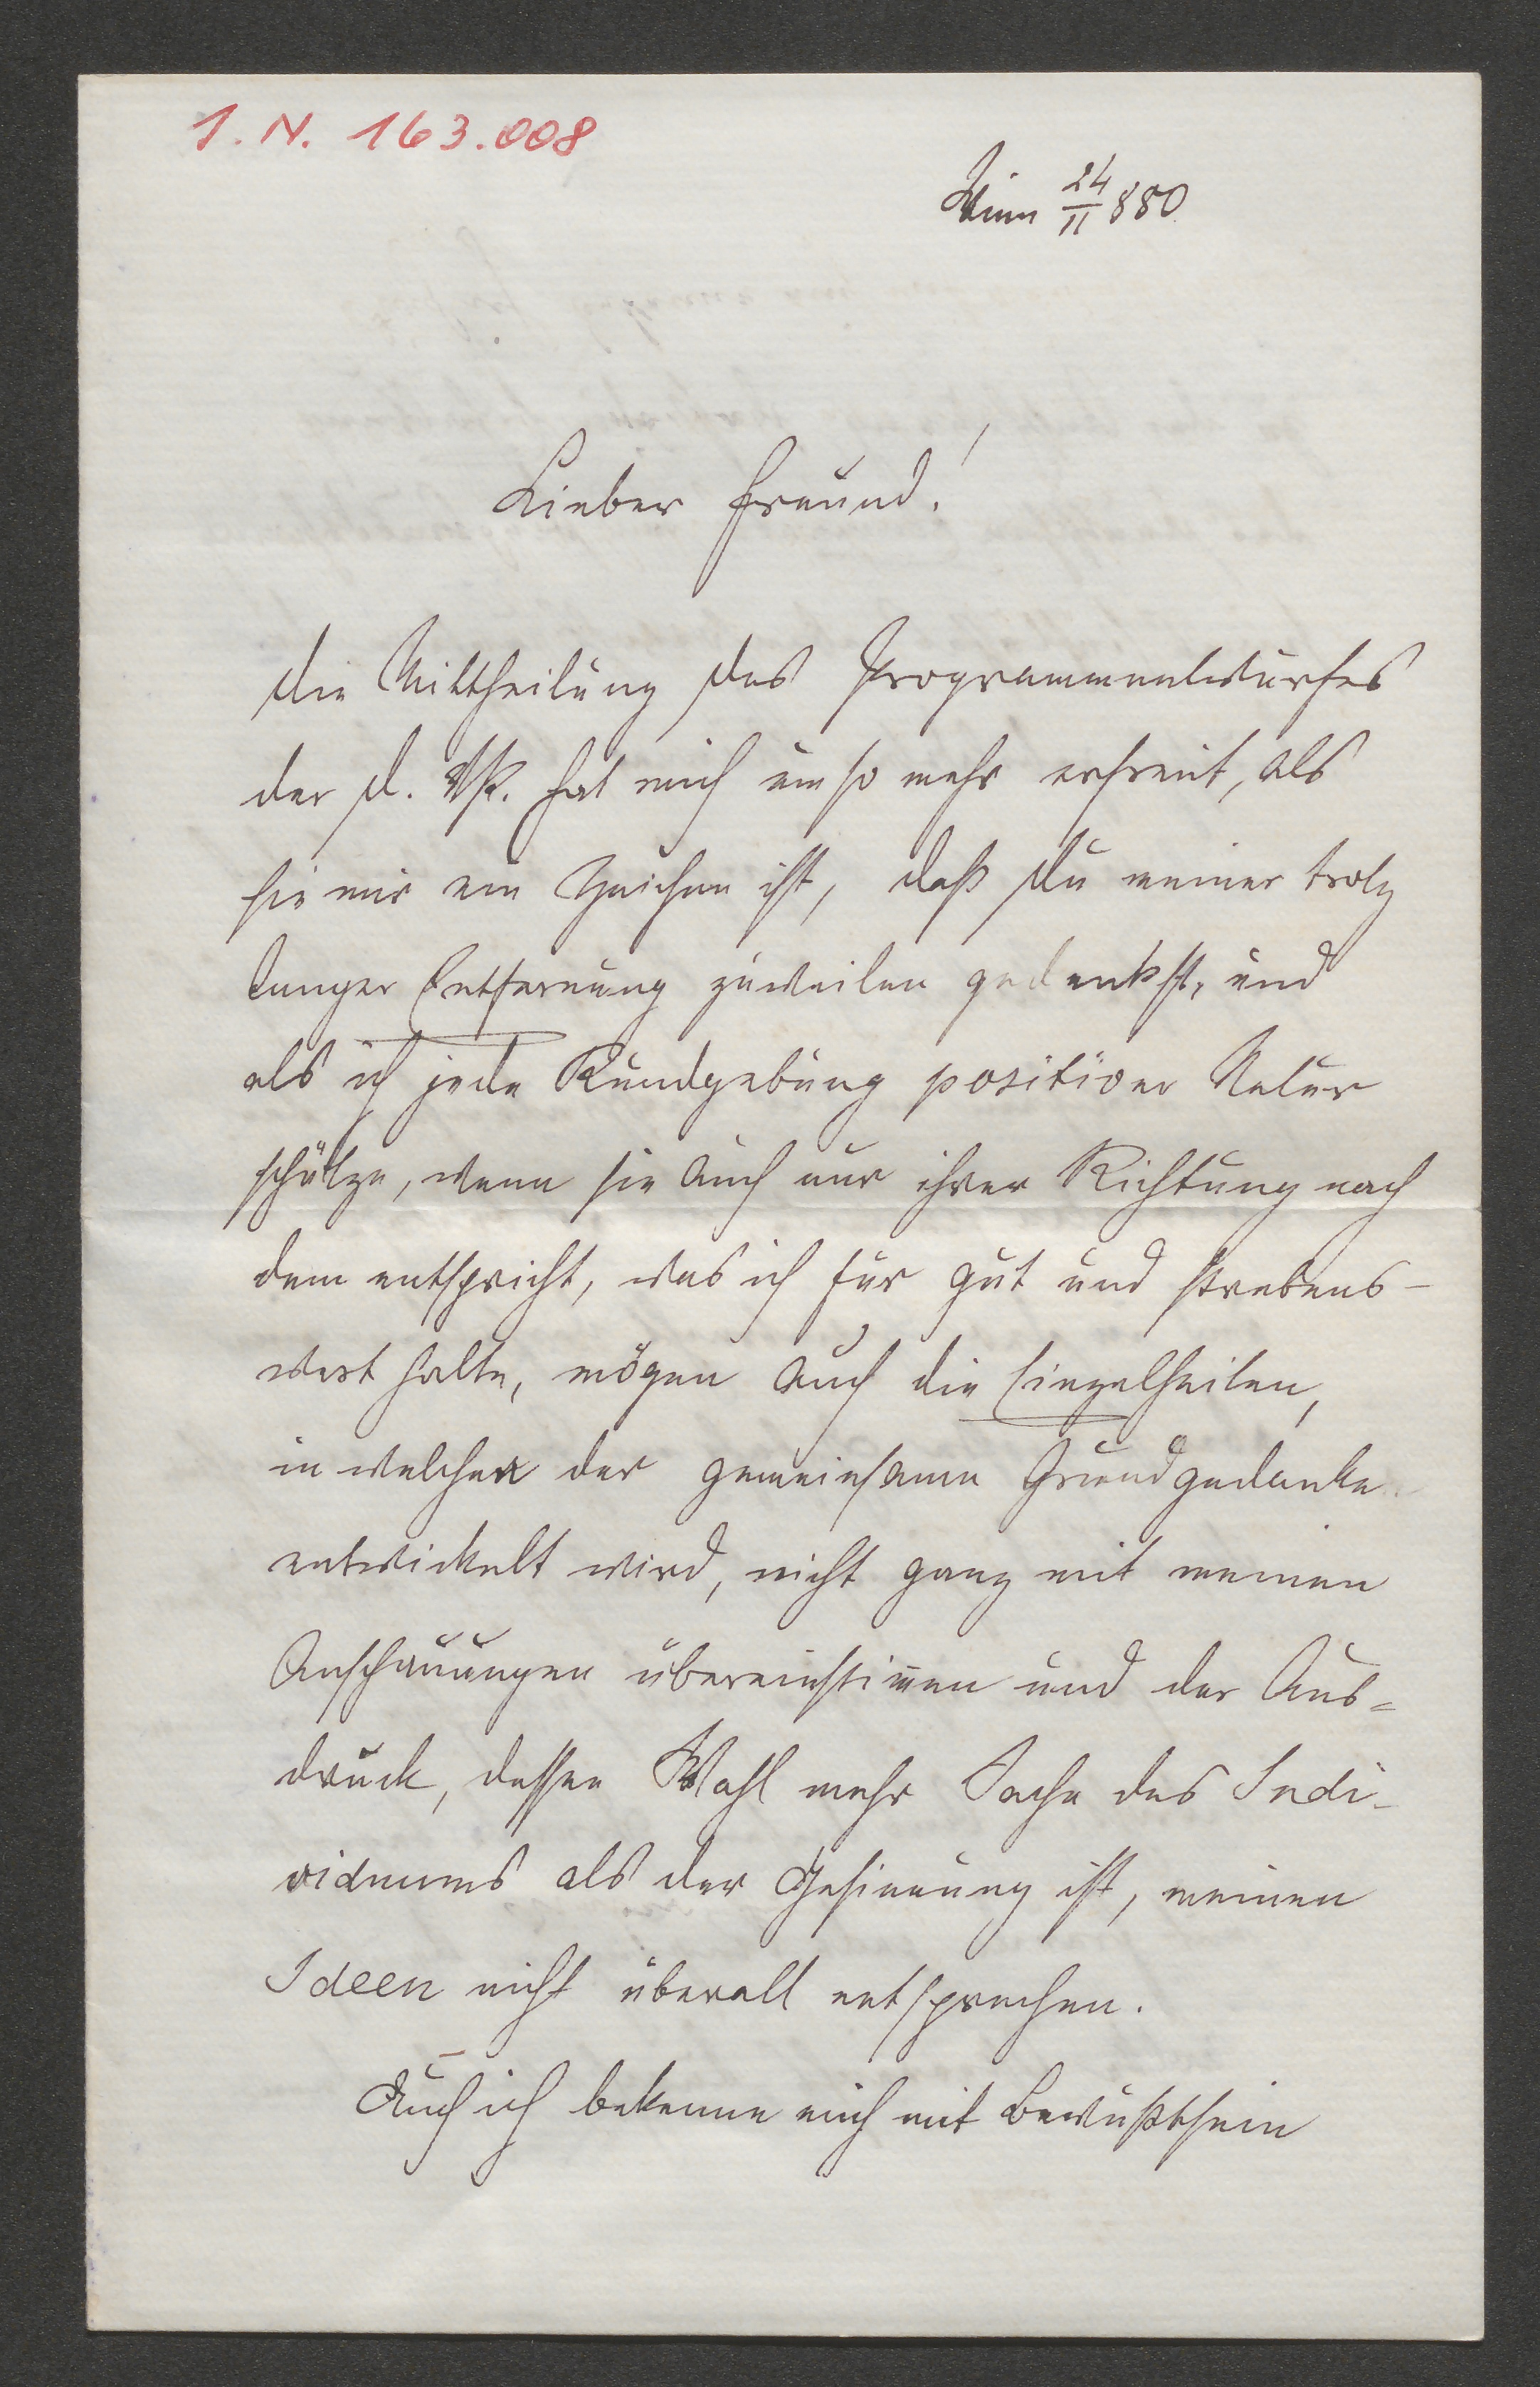 I. N. 163.008
Wien 24/II 880
Lieber Freund!
Die Mittheilung des Programmentwurfes
der D. VP. hat mich um so mehr erfreut, als
sie mir ein Zeichen ist, daß Du meiner trotz
langer Entfernung zuweilen gedenkst, und
als ich jede Kundgebung positiver Natur
schätze, wenn sie auch nur ihrer Richtung nach
dem entspricht, was ich für gut und strebens-
wert halte, mögen auch die Einzelheiten,
in welchen der gemeinsame Grundgedanke
entwickelt wird, nicht ganz mit meinen
Anschauungen übereinstimen und der Aus-
druck, dessen Wahl mehr Sache des Indi-
viduums als der Gesinnung ist, meinen
Ideen nicht überall entsprechen.
Auch ich bekenne mich mit Bewußtsein